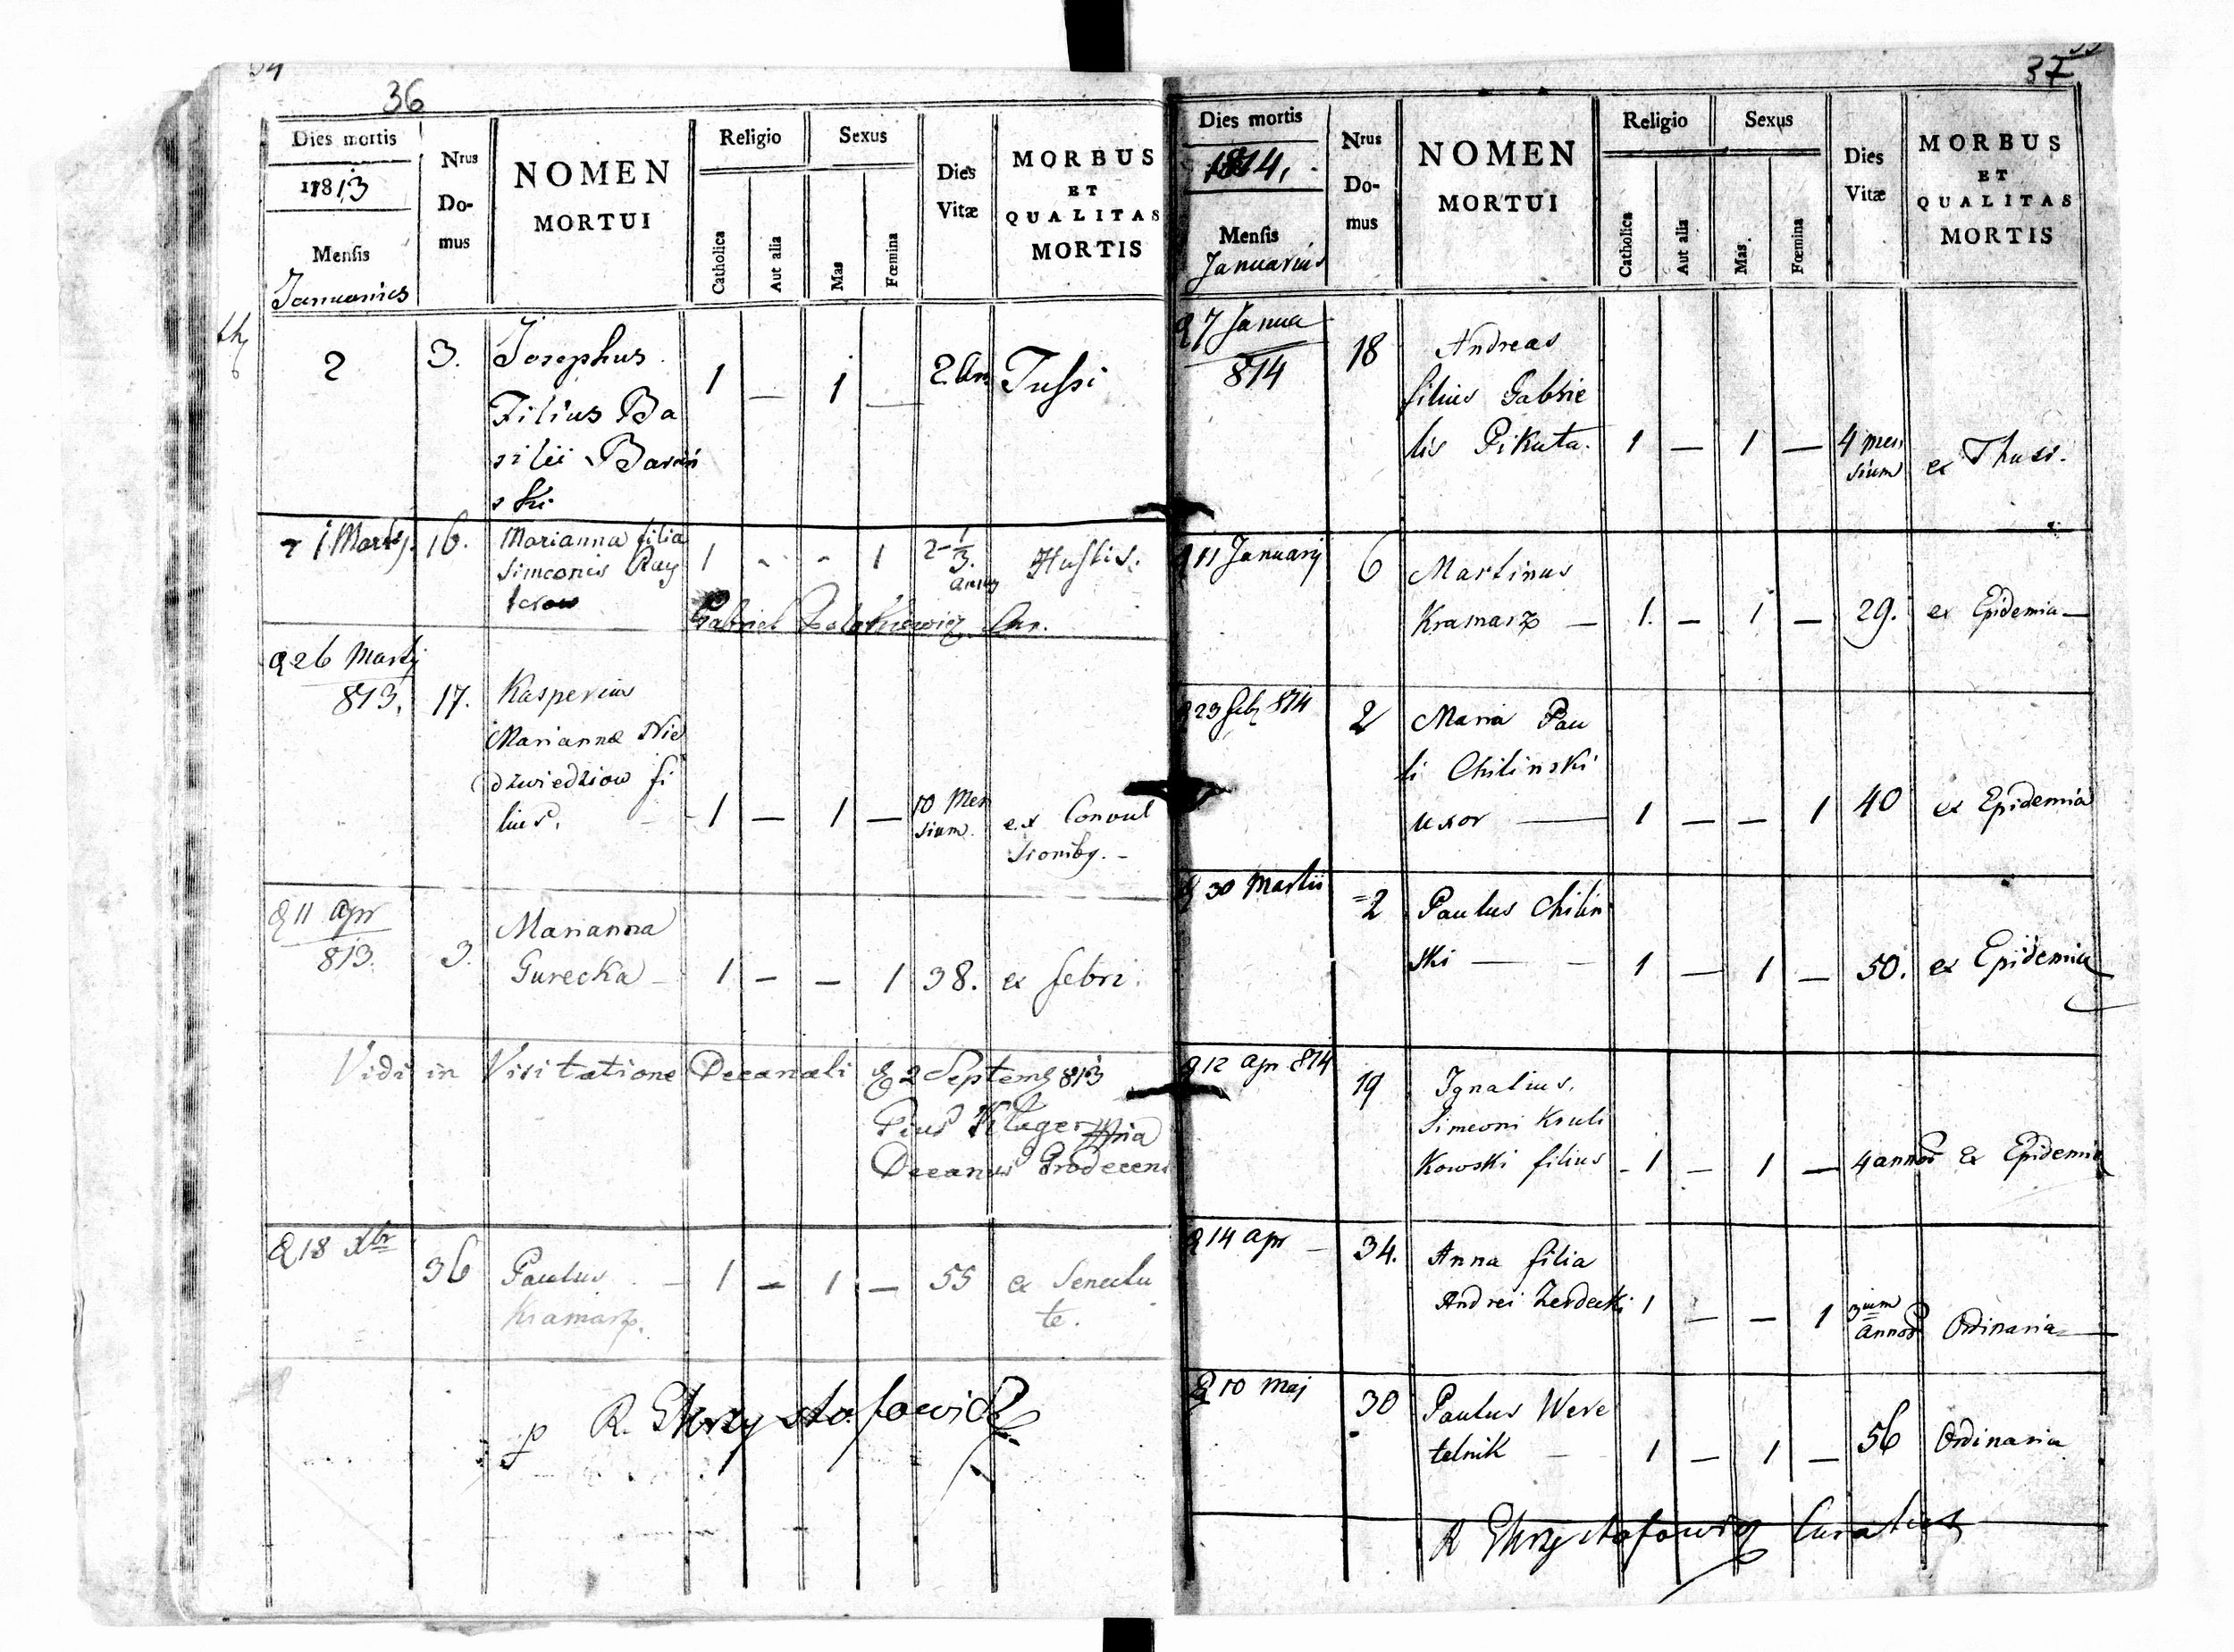 36
Dies mortis
1813
Mensis
Januarius
Nrus
Do-
mus
NOMEN
MORTUI
Religio
Catholica
Aut alia
Sexus
Mas
Fœmina
Dies
Vitæ
MORBUS
ET
QUALITAS
MORTIS
2 3. Josephus 1 — 1 — 2. An Tussi
Filius Ba
silii
ski
1 Martij. 16. Marianna filia 1 - - 1 2 1/3.
Simeonis
annus
Gabriel
26 Martij
813. 17. Kasperius
Marianna Nie
dzwiedziow fi
lius. 1 — 1 — 10 Men
sium. ex Convul
sionibq. -
11 apr
813. 3. Marianna
Gurecka - 1 — — 1 38. ex febri.
Vidi in Visitatione Decanali 2 Septemb 813
Pius
Decanus
18 Xbr 36 Paulus 1 — 1 — 55 ex Senectu
Kramarz. te.
R. Chrzystofowicz
37
Dies mortis
1814.
Mensis
Januarius
Nrus
Do-
mus
NOMEN
MORTUI
Religio
Catholica
Aut alia
Sexus
Mas.
Fœmina
Dies
Vitæ
MORBUS
ET
QUALITAS
MORTIS
7 Janua
814 18 Andreas
filius Gabrie
lis Pikuta. 1 — 1 — 4 men
sium ex Thussi.
11 Januarij 6 Martinus
Kramarz — 1. — 1 — 29. ex Epidemia —
23 feb 814 2 Maria Pau
li Chilinski
uxor — 1 — — 1 40 ex Epidemia
30 Martii 2 Paulus Chilin
ski — — 1 — 1 — 50. ex Epidemia
12 apr 814 19 Ignatius.
Simeoni Kruli
Kowski filius - 1 — 1 — 4 annor ex Epidemia
14 apr — 34. Anna filia
Andrei 1 — — 1 3ium
annor Ordinaria —
10 Maj 30 Paulus Were
telnik — 1 — 1 — 56 Ordinaria
R Chrzystofowicz Curatus